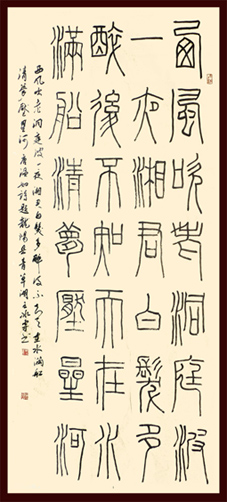 西風吹老洞庭波
一夜湘君白髮多
醉後不知天在水
滿船清夢壓星河
西风吹老洞庭波一夜湘君白髮多醉後不知天在水滿船
清夢壓星河 唐温如詩題龍陽縣青草湖